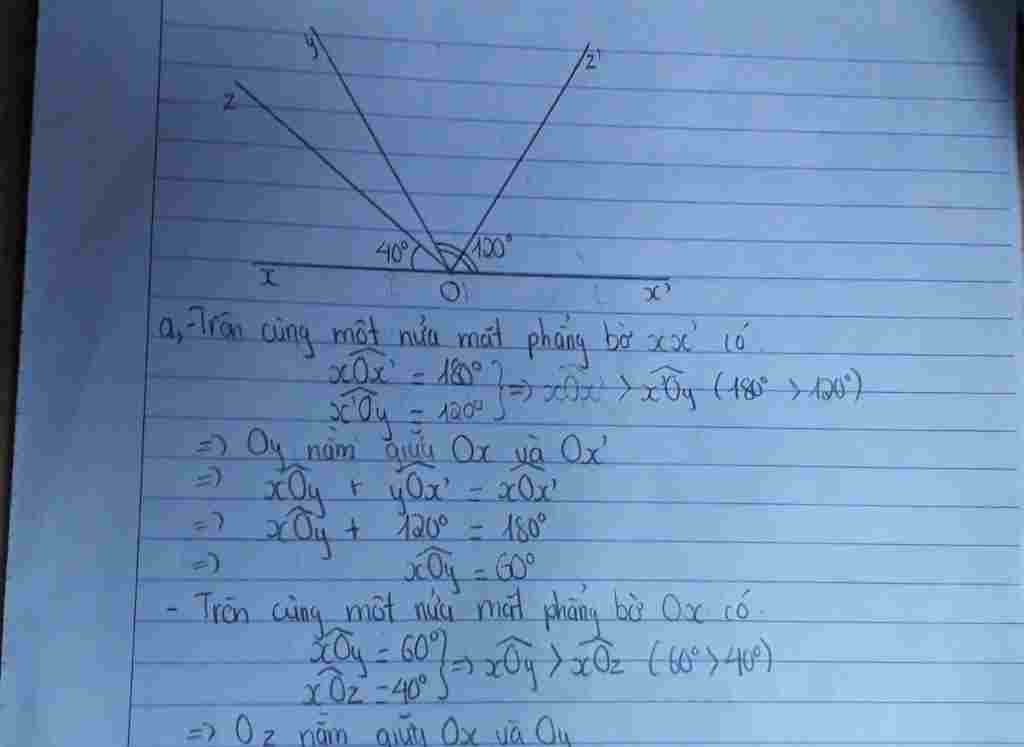 y
z'
z
40°
120°
x
O
x'
a, - Trên cùng một nửa mặt phẳng bờ xx' có
xÔx' = 180°
x'Ôy = 120° } => xÔx' > x'Ôy (180° > 120°)
=> Oy nằm giữa Ox và Ox'
=> xÔy + yÔx' = xÔx'
=> xÔy + 120° = 180°
=> xÔy = 60°
- Trên cùng một nửa mặt phẳng bờ Ox có
xÔy = 60°
xÔz = 40° } => xÔy > xÔz (60° > 40°)
=> Oz nằm giữa Ox và Oy